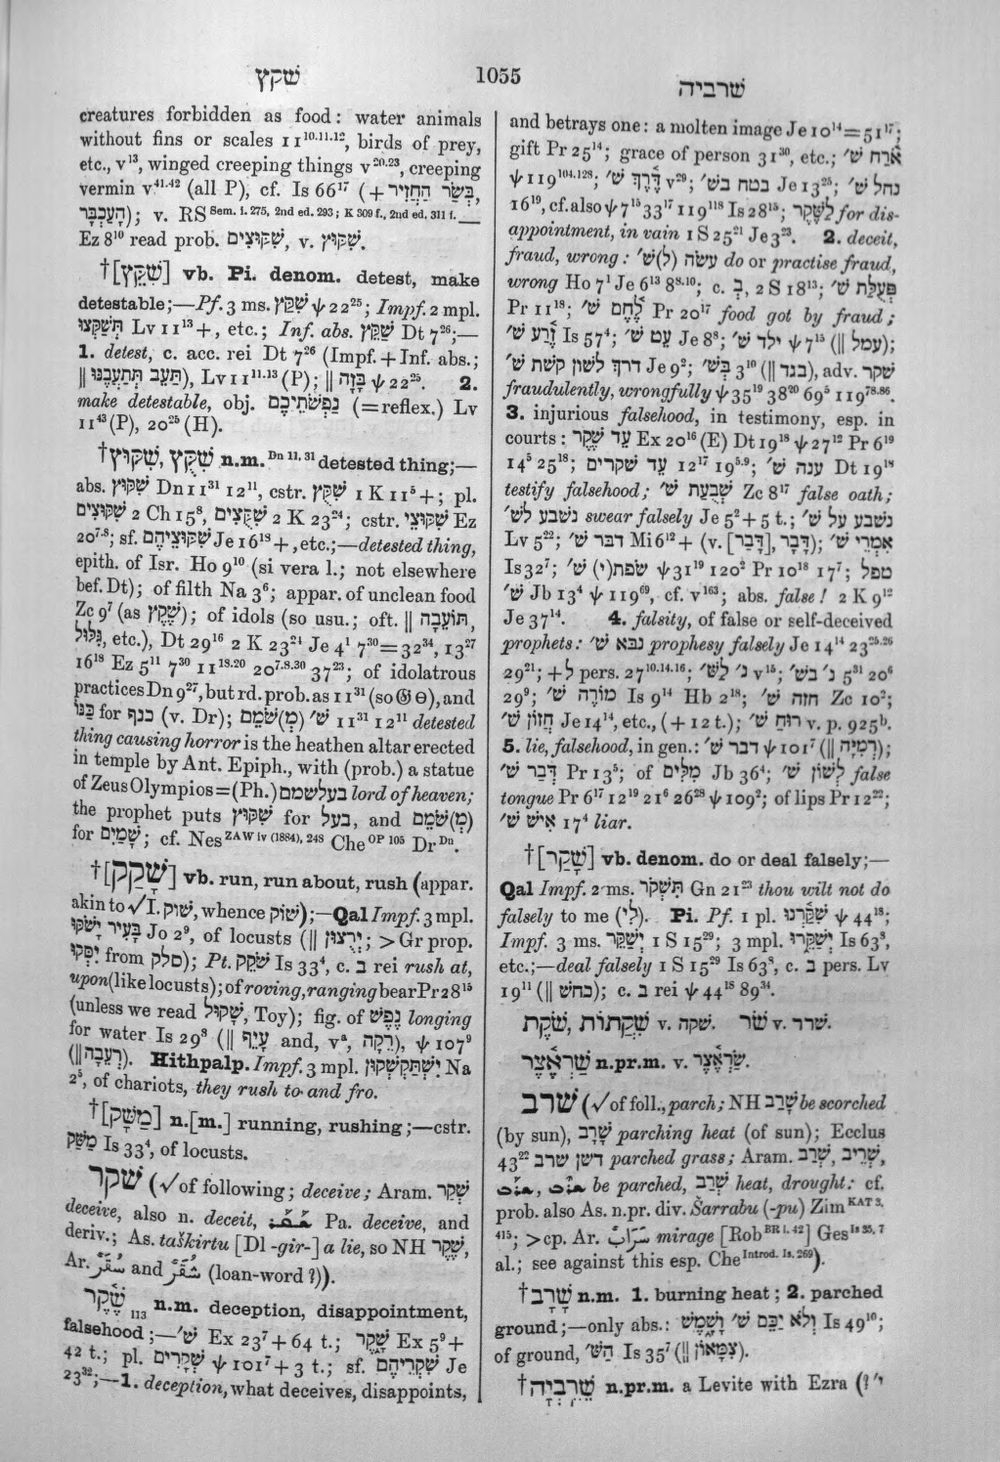 שקץ
1055
שרביה
creatures forbidden as food: water animals
without fins or scales 11¹⁰·¹¹·¹², birds of prey,
etc., v¹³, winged creeping things v²⁰·²³, creeping
vermin v⁴¹·⁴² (all P), cf. Is 66¹⁷ (+ בְּשַׂר הַחֲזִיר,
הָעַכְבָּר); v. RS Sem. i. 275, 2nd ed. 293; K 309 f., 2nd ed. 311 f.
Ez 8¹⁰ read prob. שִׁקּוּצִים, v. שִׁקּוּץ.
†[שָׁקַץ] vb. Pi. denom. detest, make
detestable;—Pf. 3 ms. שִׁקַּץ ψ 22²⁵; Impf. 2 mpl.
תְּשַׁקְּצוּ Lv 11¹³+, etc.; Inf. abs. שַׁקֵּץ Dt 7²⁶;—
1. detest, c. acc. rei Dt 7²⁶ (Impf. + Inf. abs.;
‖ תַּעֵב תְּתַעֲבֶנּוּ), Lv 11¹¹·¹³ (P); ‖ בָּזָה ψ 22²⁵. 2.
make detestable, obj. נַפְשֹׁתֵיכֶם (=reflex.) Lv
11⁴³ (P), 20²⁵ (H).
†שִׁקּוּץ, שִׁקֻּץ n.m. Dn 11, 31 detested thing;—
abs. שִׁקּוּץ Dn 11³¹ 12¹¹, cstr. שִׁקֻּץ 1 K 11⁵+; pl.
שִׁקּוּצִים 2 Ch 15⁸, שִׁקֻּצִים 2 K 23²⁴; cstr. שִׁקּוּצֵי Ez
20⁷·⁸; sf. שִׁקּוּצֵיהֶם Je 16¹⁸+, etc.;—detested thing,
epith. of Isr. Ho 9¹⁰ (si vera l.; not elsewhere
bef. Dt); of filth Na 3⁶; appar. of unclean food
Zc 9⁷ (as שֶׁקֶץ); of idols (so usu.; oft. ‖ תּוֹעֵבָה,
גִּלּוּל, etc.), Dt 29¹⁶ 2 K 23²⁴ Je 4¹ 7³⁰=32³⁴, 13²⁷
16¹⁸ Ez 5¹¹ 7²⁰ 11¹⁸·²⁰ 20⁷·⁸·³⁰ 37²³; of idolatrous
practices Dn 9²⁷, but rd. prob. as 11³¹ (so 𝔊 Θ), and
כַּנּוֹ for כנף (v. Dr); שׁ׳ (מְ)שֹׁמֵם 11³¹ 12¹¹ detested
thing causing horror is the heathen altar erected
in temple by Ant. Epiph., with (prob.) a statue
of Zeus Olympios=(Ph.) בעלשמם lord of heaven;
the prophet puts שִׁקּוּץ for בעל, and (מְ)שֹׁמֵם
for שָׁמַיִם; cf. Nes ZAW iv (1884), 248 Che OP 105 Dr Dn.
†[שָׁקַק] vb. run, run about, rush (appar.
akin to √I. שׁוק, whence שׁוֹק);—Qal Impf. 3 mpl.
בָּעִיר יָשֹׁקּוּ Jo 2⁹, of locusts (‖ יְרֻצוּן; >Gr prop.
יִסְּקוּ from סלק); Pt. שֹׁקֵק Is 33⁴, c. ב rei rush at,
upon (like locusts); of roving, ranging bear Pr 28¹⁵
(unless we read שָׁקוּל, Toy); fig. of נֶפֶשׁ longing
for water Is 29⁸ (‖ עָיֵף and, vᵃ, רֵקָה), ψ 107⁹
(‖ רְעֵבָה). Hithpalp. Impf. 3 mpl. יִשְׁתַּקְשְׁקוּן Na
2⁵, of chariots, they rush to and fro.
†[מַשָּׁק] n.[m.] running, rushing;—cstr.
מַשַּׁק Is 33⁴, of locusts.
שׁקר (√of following; deceive; Aram. שְׁקַר
deceive, also n. deceit, Pa. deceive, and
deriv.; As. taškirtu [Dl -gir-] a lie, so NH שֶׁקֶר,
Ar. شقر and شُقَّر (loan-word?)).
שֶׁקֶר 113 n.m. deception, disappointment,
falsehood;—שׁ׳ Ex 23⁷ + 64 t.; שָׁקֶר Ex 5⁹ +
42 t.; pl. שְׁקָרִים ψ 101⁷ + 3 t.; sf. שִׁקְרֵיהֶם Je
23³²;—1. deception, what deceives, disappoints,
and betrays one: a molten image Je 10¹⁴=51¹⁷;
gift Pr 25¹⁴; grace of person 31³⁰, etc.; אֹרַח שׁ׳
ψ 119¹⁰⁴·¹²⁸; דֶּרֶךְ שׁ׳ v²⁹; בטח בשׁ׳ Je 13²⁵; נחל שׁ׳
16¹⁹, cf. also ψ 7¹⁵ 33¹⁷ 119¹¹⁸ Is 28¹⁵; לַשֶּׁקֶר for dis-
appointment, in vain 1 S 25²¹ Je 3²³. 2. deceit,
fraud, wrong: עשׂה (ל)שׁ׳ do or practise fraud,
wrong Ho 7¹ Je 6¹³ 8⁸·¹⁰; c. בְּ, 2 S 18¹³; פְּעֻלַּת שׁ׳
Pr 11¹⁸; לֶחֶם שׁ׳ Pr 20¹⁷ food got by fraud;
זֶרַע שׁ׳ Is 57⁴; עֵט שׁ׳ Je 8⁸; ילד שׁ׳ ψ 7¹⁵ (‖ עמל);
דרך לשׁון קשׁת שׁ׳ Je 9²; בְּשׁ׳ 3¹⁰ (‖ בגד), adv. שׁקר
fraudulently, wrongfully ψ 35¹⁹ 38²⁰ 69⁵ 119⁷⁸·⁸⁶.
3. injurious falsehood, in testimony, esp. in
courts: עֵד שֶׁקֶר Ex 20¹⁶ (E) Dt 19¹⁸ ψ 27¹² Pr 6¹⁹
14⁵ 25¹⁸; עֵד שׁקרים 12¹⁷ 19⁵·⁹; ענה שׁ׳ Dt 19¹⁸
testify falsehood; שְׁבֻעַת שׁ׳ Zc 8¹⁷ false oath;
נשׁבע לשׁ׳ swear falsely Je 5² + 5 t.; נשׁבע על שׁ׳
Lv 5²²; דבר שׁ׳ Mi 6¹²+ (v. [דָּבַר], דָּבָר); אִמְרֵי שׁ׳
Is 32⁷; שׂפת(י) שׁ׳ ψ 31¹⁹ 120² Pr 10¹⁸ 17⁷; טפל
שׁ׳ Jb 13⁴ ψ 119⁶⁹, cf. v¹⁶³; abs. false! 2 K 9¹²
Je 37¹⁴. 4. falsity, of false or self-deceived
prophets: נבּא שׁ׳ prophesy falsely Je 14¹⁴ 23²⁵·²⁶
29²¹; + ל pers. 27¹⁰·¹⁴·¹⁶; נ׳ לַשׁ׳ v¹⁵; נ׳ בשׁ׳ 5³¹ 20⁶
29⁹; מוֹרֶה שׁ׳ Is 9¹⁴ Hb 2¹⁸; חזה שׁ׳ Zc 10²;
חֲזוֹן שׁ׳ Je 14¹⁴, etc., (+ 12 t.); רוּחַ שׁ׳ v. p. 925ᵇ.
5. lie, falsehood, in gen.: דבר שׁ׳ ψ 101⁷ (‖ רְמִיָּה);
דְּבַר שׁ׳ Pr 13⁵; of מִלִּים Jb 36⁴; לְשׁוֹן שׁ׳ false
tongue Pr 6¹⁷ 12¹⁹ 21⁶ 26²⁸ ψ 109²; of lips Pr 12²²;
אִישׁ שׁ׳ 17⁴ liar.
†[שָׁקַר] vb. denom. do or deal falsely;—
Qal Impf. 2 ms. תִּשְׁקֹר Gn 21²³ thou wilt not do
falsely to me (לִי). Pi. Pf. 1 pl. שִׁקַּרְנוּ ψ 44¹⁸;
Impf. 3 ms. יְשַׁקֵּר 1 S 15²⁹; 3 mpl. יְשַׁקֵּרוּ Is 63⁸,
etc.;—deal falsely 1 S 15²⁹ Is 63⁸, c. ב pers. Lv
19¹¹ (‖ כחשׁ); c. ב rei ψ 44¹⁸ 89³⁴.
שִׁקֲתוֹת, שֹׁקֶת v. שׁקה. שֹׁר v. שׁרר.
שַׁרְאֶצֶר n.pr.m. v. שַׂרְאֶצֶר.
שׁרב (√of foll., parch; NH שָׁרַב be scorched
(by sun), שָׁרָב parching heat (of sun); Ecclus
43²² דשׁן שׁרב parched grass; Aram. שְׁרֵב, שְׁרִיב,
be parched, שַׁרְב heat, drought: cf.
prob. also As. n.pr. div. Šarrabu (-pu) Zim KAT 3.
415; >cp. Ar. سَرَابٌ mirage [Rob BR i. 42] Ges Is 35, 7
al.; see against this esp. Che Introd. Is. 269).
†שָׁרָב n.m. 1. burning heat; 2. parched
ground;—only abs.: וְלֹא יַכֵּם שׁ׳ וָשָׁמֶשׁ Is 49¹⁰;
of ground, הַשּׁ׳ Is 35⁷ (‖ צִמָּאוֹן).
†שֵׁרֵבְיָה n.pr.m. a Levite with Ezra (? י׳